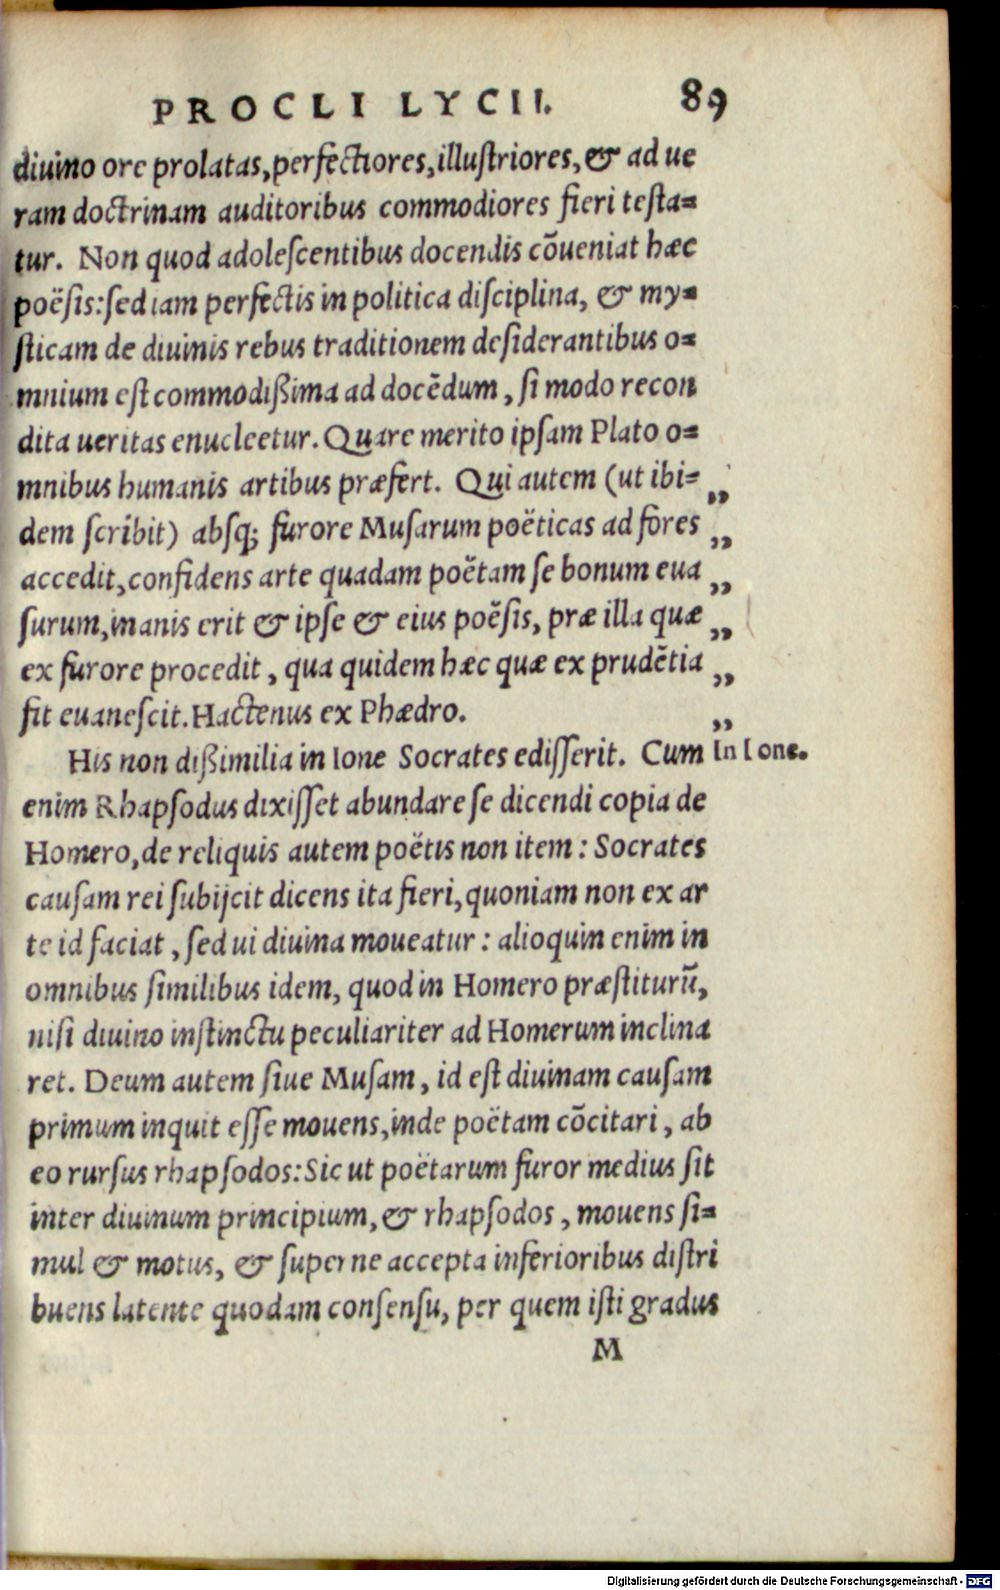 PROCLI LYCII. 89
diuino ore prolatas, perfectiores, illuſtriores, & ad ue
ram doctrinam auditoribus commodiores fieri teſta=
tur. Non quod adoleſcentibus docendis cõueniat hæc
poëſis: ſed iam perfectis in politica diſciplina, & my=
ſticam de diuinis rebus traditionem deſiderantibus o=
mnium eſt commodißima ad docēdum, ſi modo recon
dita ueritas enucleetur. Quare merito ipſam Plato o=
mnibus humanis artibus præfert. Qui autem (ut ibi= „
dem ſcribit) abſq; furore Muſarum poëticas ad fores „
accedit, confidens arte quadam poëtam ſe bonum eua „
ſurum, inanis erit & ipſe & eius poëſis, præ illa quæ „
ex furore procedit, qua quidem hæc quæ ex prudētia „
fit euaneſcit. Hactenus ex Phædro. „
His non dißimilia in Ione Socrates ediſſerit. Cum In Ione.
enim Rhapſodus dixiſſet abundare ſe dicendi copia de
Homero, de reliquis autem poëtis non item: Socrates
cauſam rei ſubijcit dicens ita fieri, quoniam non ex ar
te id faciat, ſed ui diuina moueatur: alioquin enim in
omnibus ſimilibus idem, quod in Homero præſtiturũ,
niſi diuino inſtinctu peculiariter ad Homerum inclina
ret. Deum autem ſiue Muſam, id eſt diuinam cauſam
primum inquit eſſe mouens, inde poëtam cõcitari, ab
eo rurſus rhapſodos: Sic ut poëtarum furor medius ſit
inter diuinum principium, & rhapſodos, mouens ſi=
mul & motus, & ſuperne accepta inferioribus diſtri
buens latente quodam conſenſu, per quem iſti gradus
M
Digitalisierung gefördert durch die Deutsche Forschungsgemeinschaft - DFG